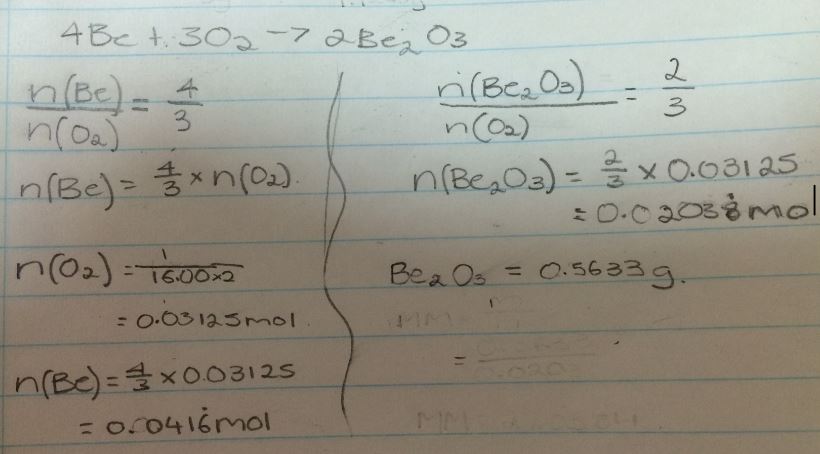 4Be + 3O₂ → 2Be₂O₃
n(Be)/n(O₂) = 4/3
n(Be) = 4/3 × n(O₂).
n(O₂) = 1/16.00×2
= 0.03125mol.
n(Be) = 4/3 × 0.03125
= 0.0416̇mol
n(Be₂O₃)/n(O₂) = 2/3
n(Be₂O₃) = 2/3 × 0.03125
= 0.02083̇mol
Be₂O₃ = 0.5633g.
MM =
=
MM